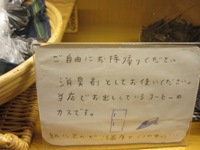 ご自由にお持帰りください
消臭剤としてお使いください。
当店でお出ししているコーヒーの
カスです。